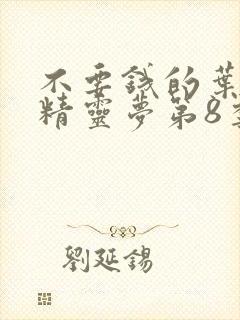 不要錢的葉
精靈夢第8季
劉延錫